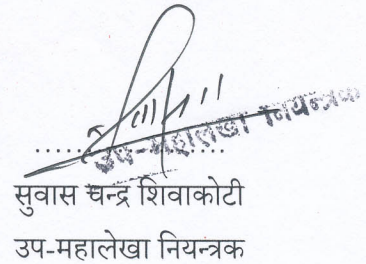 उप-महालेखा नियन्त्रक
सुवास चन्द्र शिवाकोटी
उप-महालेखा नियन्त्रक